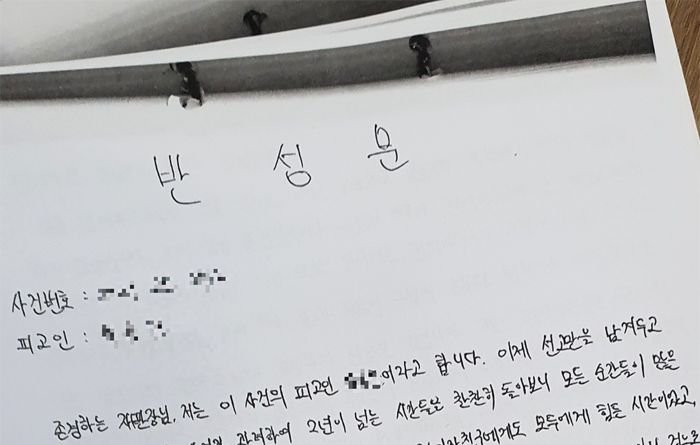 반성문
사건번호 :
피고인 :
존경하는 재판장님. 저는 이 사건의 피고인 이라고 합니다. 이제 선고만을 남겨두고
관하여 2년이 넘는 시간들을 찬찬히 돌아보니 모든 순간들이 많은
에게도 모두에게 힘든 시간이었고,